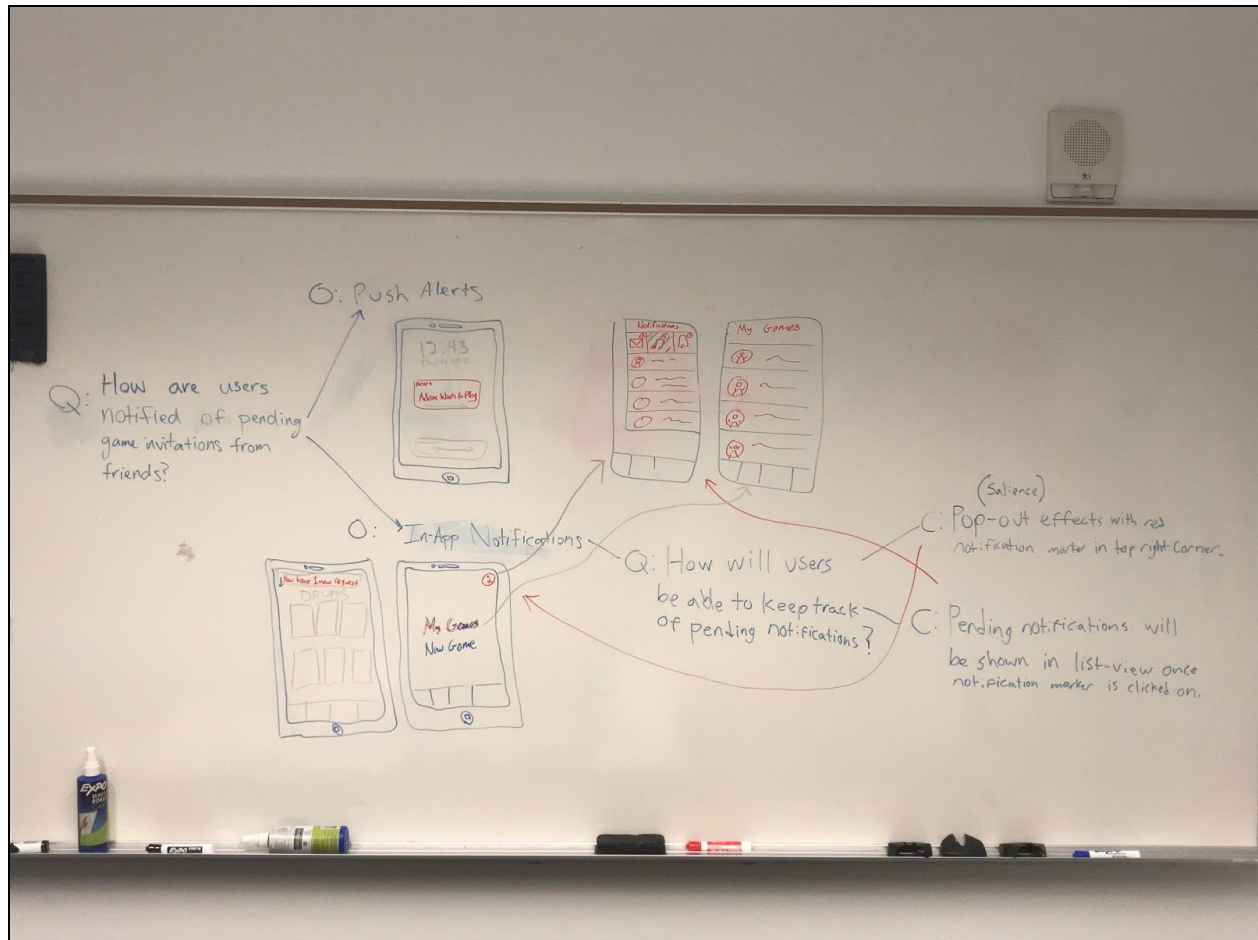 O: Push Alerts
Q: How are users
notified of pending
game invitations from
friends?
12:43
Adam Wants to Play
Notifications
My Games
O: In-App Notifications
You have 1 new request
DRUMS
2
My Games
New Game
Q: How will users
be able to keep track
of pending notifications?
(Salience)
C: Pop-out effects with red
notification marker in top right corner.
C: Pending notifications will
be shown in list-view once
notification marker is clicked on.
EXPO
EXPO